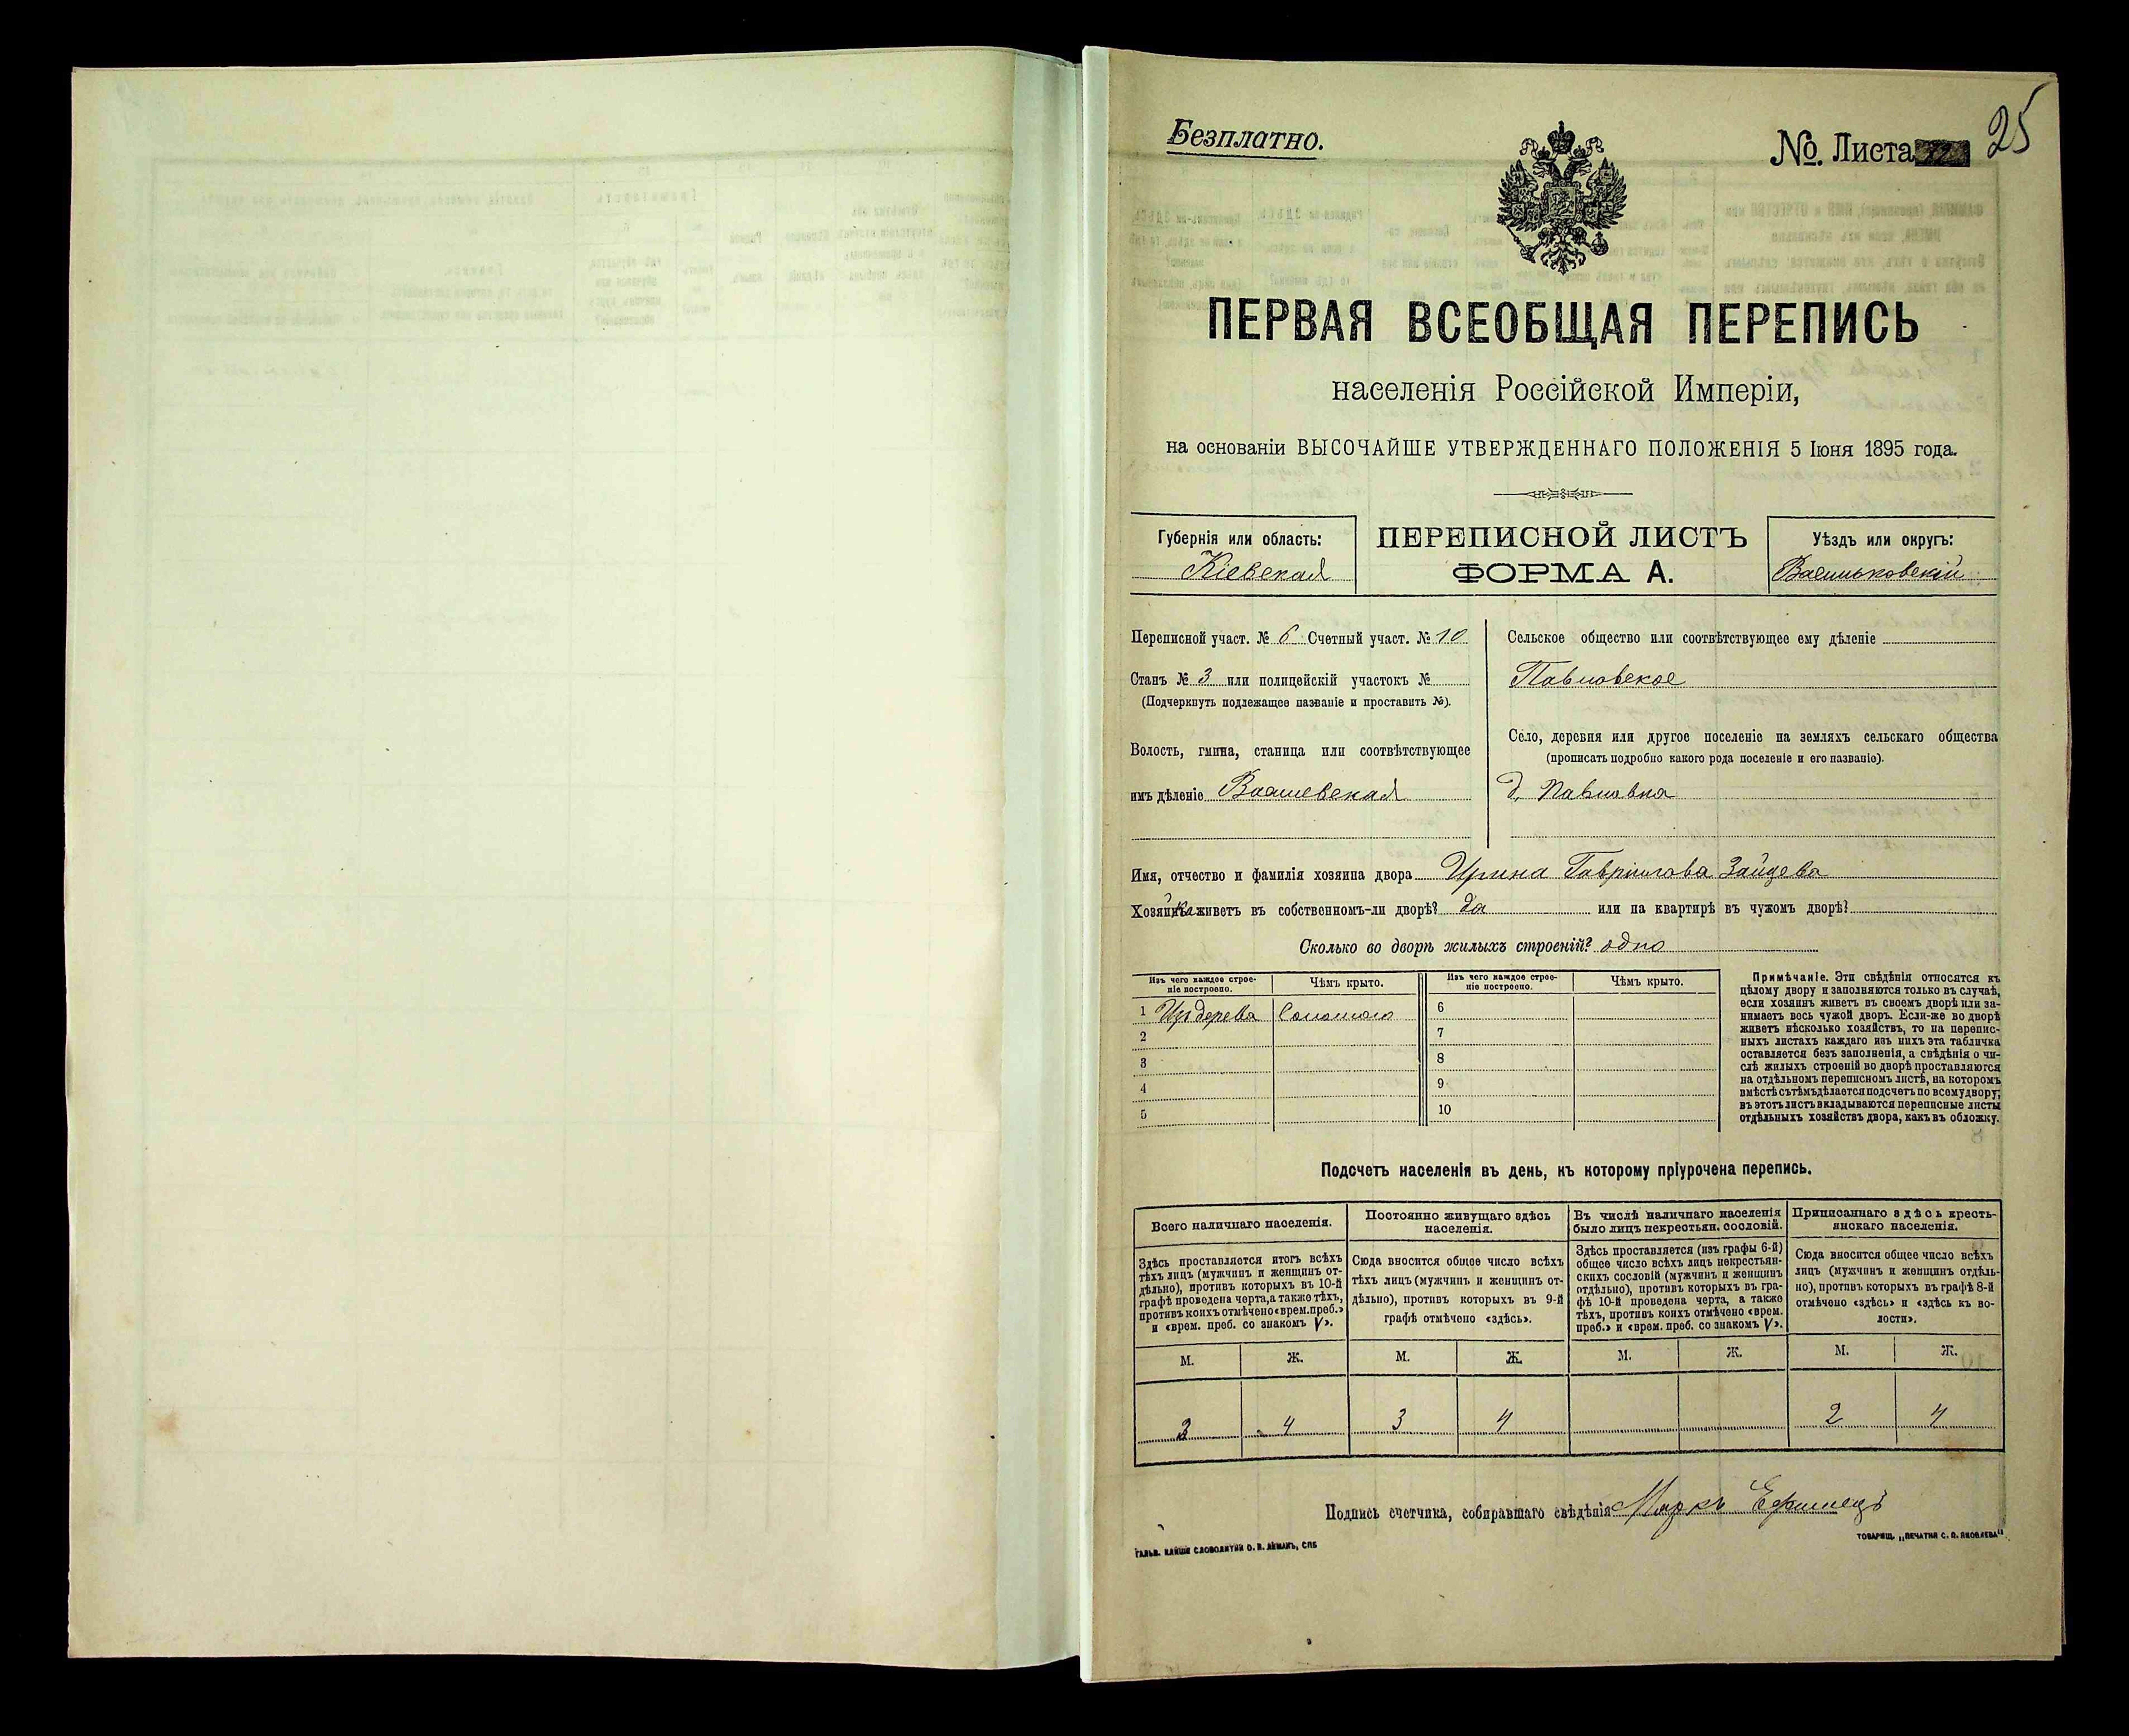 25
Безплатно.
№. Листа
ПЕРВАЯ ВСЕОБЩАЯ ПЕРЕПИСЬ
населенія Россійской Имперіи,
на основаніи ВЫСОЧАЙШЕ УТВЕРЖДЕННАГО ПОЛОЖЕНІЯ 5 Іюня 1895 года.
Губернія или область:
Кіевская
ПЕРЕПИСНОЙ ЛИСТЪ
ФОРМА А.
Уѣздъ или округъ:
Васильковскій
Переписной участ. № 6 Счетный участ. № 10
Станъ № 3 или полицейскій участокъ №
(Подчеркнуть подлежащее названіе и проставить №).
Волость, гмина, станица или соотвѣтствующее
имъ дѣленіе
Сельское общество или соотвѣтствующее ему дѣленіе
Павловское
Село, деревня или другое поселеніе на земляхъ сельскаго общества
(прописать подробно какого рода поселеніе и его названіе).
д. Павловка
Имя, отчество и фамилія хозяина двора Ирина Гаврилова Зайцева
Хозяйка живетъ въ собственномъ-ли дворѣ? да или на квартирѣ въ чужомъ дворѣ?
Сколько во дворѣ жилыхъ строеній? одно
Изъ чего каждое строе-
ніе построено.
Чѣмъ крыто.
Изъ чего каждое строе-
ніе построено.
Чѣмъ крыто.
1 Изъ дерева Соломою 6
2 7
3 8
4 9
5 10
Примѣчаніе. Эти свѣдѣнія относятся къ
цѣлому двору и заполняются только въ случаѣ,
если хозяинъ живетъ въ своемъ дворѣ или за-
нимаетъ весь чужой дворъ. Если-же во дворѣ
живетъ нѣсколько хозяйствъ, то на перепис-
ныхъ листахъ каждаго изъ нихъ эта табличка
оставляется безъ заполненія, а свѣдѣнія о чи-
слѣ жилыхъ строеній во дворѣ проставляются
на отдѣльномъ переписномъ листѣ, на которомъ
вмѣстѣ съ тѣмъ дѣлается подсчетъ по всему двору;
въ этотъ листъ вкладываются переписные листы
отдѣльныхъ хозяйствъ двора, какъ въ обложку.
Подсчетъ населенія въ день, къ которому пріурочена перепись.
Всего наличнаго населенія.
Здѣсь проставляется итогъ всѣхъ
тѣхъ лицъ (мужчинъ и женщинъ от-
дѣльно), противъ которыхъ въ 10-й
графѣ проведена черта, а также тѣхъ,
противъ коихъ отмѣчено «врем. преб.»
и «врем. преб. со знакомъ V».
Постоянно живущаго здѣсь
населенія.
Сюда вносится общее число всѣхъ
тѣхъ лицъ (мужчинъ и женщинъ от-
дѣльно), противъ которыхъ въ 9-й
графѣ отмѣчено «здѣсь».
Въ числѣ наличнаго населенія
было лицъ некрестьян. сословій.
Здѣсь проставляется (изъ графы 6-й)
общее число всѣхъ лицъ некрестьян-
скихъ сословій (мужчинъ и женщинъ
отдѣльно), противъ которыхъ въ гра-
фѣ 10-й проведена черта, а также
тѣхъ, противъ коихъ отмѣчено «врем.
преб.» и «врем. преб. со знакомъ V».
Приписаннаго здѣсь кресть-
янскаго населенія.
Сюда вносится общее число всѣхъ
лицъ (мужчинъ и женщинъ отдѣль-
но), противъ которыхъ въ графѣ 8-й
отмѣчено «здѣсь» и «здѣсь къ во-
лости».
М. Ж. М. Ж. М. Ж. М. Ж.
3 4 3 4 2 4
Подпись счетчика, собиравшаго свѣдѣнія Маркъ
ТОВАРИЩ. „ПЕЧАТНЯ С. П. ЯКОВЛЕВА"
ГАЛЬВ. КЛИШЕ СЛОВОЛИТНИ О. И. ЛЕМАНЪ, СПБ